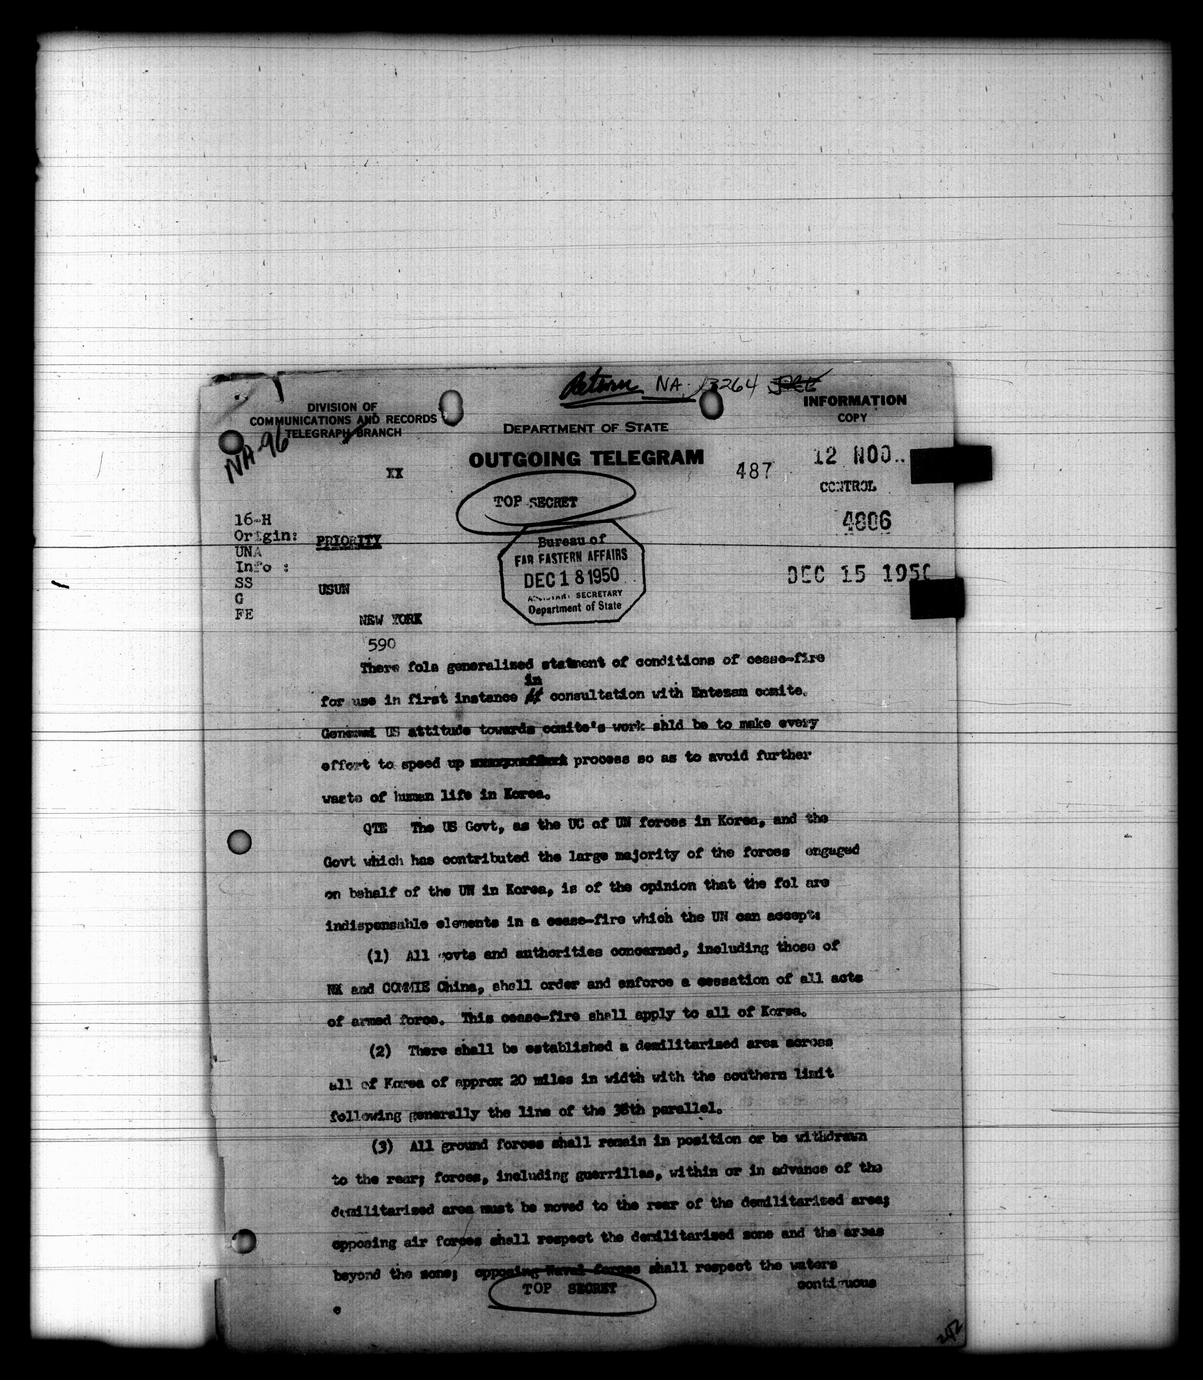 Return NA. 13264
INFORMATION
COPY
DIVISION OF
COMMUNICATIONS AND RECORDS
TELEGRAPH BRANCH
NA-96
DEPARTMENT OF STATE
OUTGOING TELEGRAM
487
12 NOO
CONTROL
4806
XX
TOP SECRET
16-H
Origin:
UNA
Info :
SS
G
FE
PRIORITY
Bureau of
FAR EASTERN AFFAIRS
DEC 18 1950
ASSISTANT SECRETARY
Department of State
DEC 15 1950
USUN
NEW YORK
590
There fols generalized statment of conditions of cease-fire
in
for use in first instance consultation with Entezam comite.
General US attitude towards comite's work shld be to make every
effort to speed up process so as to avoid further
waste of human life in Korea.
QTE The US Govt, as the UC of UN forces in Korea, and the
Govt which has contributed the large majority of the forces engaged
on behalf of the UN in Korea, is of the opinion that the fol are
indispensable elements in a cease-fire which the UN can accept:
(1) All govts and authorities concerned, including those of
NK and COMMIE China, shall order and enforce a cessation of all acts
of armed force. This cease-fire shall apply to all of Korea.
(2) There shall be established a demilitarized area across
all of Korea of approx 20 miles in width with the southern limit
following generally the line of the 38th parallel.
(3) All ground forces shall remain in position or be withdrawn
to the rear; forces, including guerrillas, within or in advance of the
demilitarized area must be moved to the rear of the demilitarized area;
opposing air forces shall respect the demilitarized zone and the areas
beyond the zone; opposing Naval forces shall respect the waters
contiguous
TOP SECRET
e
242